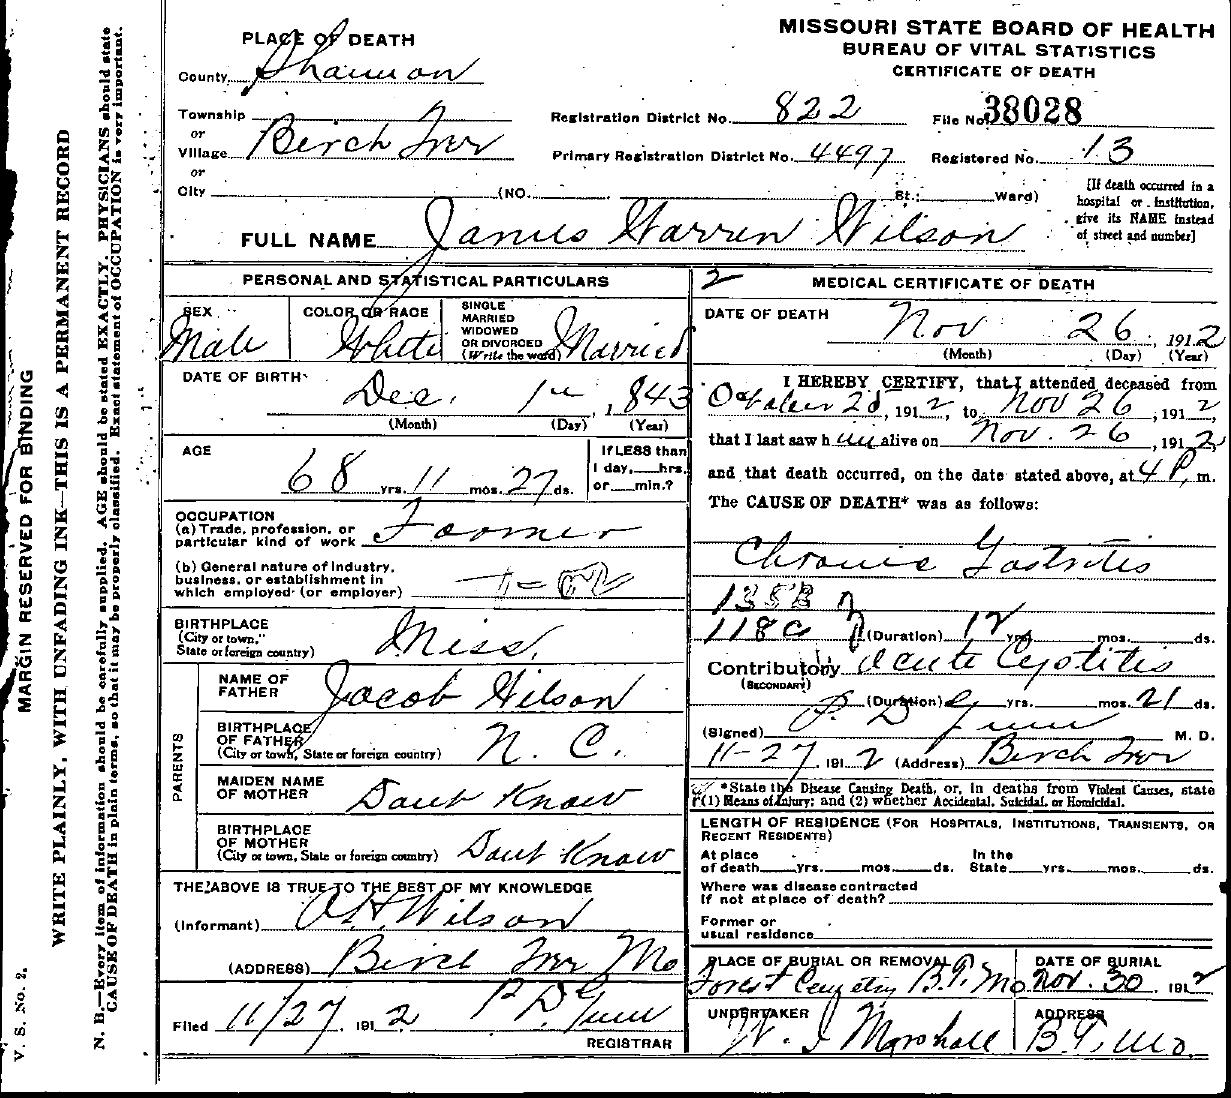 MISSOURI STATE BOARD OF HEALTH
BUREAU OF VITAL STATISTICS
CERTIFICATE OF DEATH
PLACE OF DEATH
County Shannon
Township
or
Village Birch Tree
or
City (NO. St.; Ward)
Registration District No. 822
File No. 38028
Primary Registration District No. 4497
Registered No. 13
[If death occurred in a
hospital or institution,
give its NAME instead
of street and number]
FULL NAME James Warren Wilson
PERSONAL AND STATISTICAL PARTICULARS
SEX
Male
COLOR OR RACE
White
SINGLE
MARRIED
WIDOWED
OR DIVORCED
(Write the word) Married
DATE OF BIRTH
Dec. 1st, 1843
(Month) (Day) (Year)
AGE
68 yrs. 11 mos. 27 ds.
If LESS than
1 day, hrs.
or min.?
OCCUPATION
(a) Trade, profession, or
particular kind of work Farmer
(b) General nature of industry,
business, or establishment in
which employed (or employer)
BIRTHPLACE
(City or town,
State or foreign country) Miss.
PARENTS
NAME OF
FATHER Jacob Wilson
BIRTHPLACE
OF FATHER
(City or town, State or foreign country) N. C.
MAIDEN NAME
OF MOTHER Dont Know
BIRTHPLACE
OF MOTHER
(City or town, State or foreign country) Dont Know
THE ABOVE IS TRUE TO THE BEST OF MY KNOWLEDGE
(Informant) Wilson
(ADDRESS) Birch Tree Mo
Filed 11/27 1912 P. D. Gum
REGISTRAR
2 MEDICAL CERTIFICATE OF DEATH
DATE OF DEATH
Nov 26, 1912
(Month) (Day) (Year)
I HEREBY CERTIFY, that I attended deceased from
October 28, 1912, to Nov 26, 1912,
that I last saw him alive on Nov. 26, 1912,
and that death occurred, on the date stated above, at 4 P, m.
The CAUSE OF DEATH* was as follows:
Chronic Gastritis
118a (Duration) 12 yrs. mos. ds.
Contributory Acute Cystitis
(SECONDARY)
(Duration) yrs. mos. 21 ds.
(Signed) P. D. Gum M. D.
11-27, 1912 (Address) Birch Tree
*State the Disease Causing Death, or, in deaths from Violent Causes, state
(1) Means of Injury; and (2) whether Accidental, Suicidal, or Homicidal.
LENGTH OF RESIDENCE (FOR HOSPITALS, INSTITUTIONS, TRANSIENTS, OR
RECENT RESIDENTS)
At place
of death yrs. mos. ds.
In the
State yrs. mos. ds.
Where was disease contracted
If not at place of death?
Former or
usual residence
PLACE OF BURIAL OR REMOVAL
Forest Cemetery B.T. Mo
DATE OF BURIAL
Nov. 30, 1912
UNDERTAKER
W. J. Marshall
ADDRESS
B.T., Mo.
MARGIN RESERVED FOR BINDING
WRITE PLAINLY, WITH UNFADING INK—THIS IS A PERMANENT RECORD
N. B.—Every item of information should be carefully supplied. AGE should be stated EXACTLY. PHYSICIANS should state
CAUSE OF DEATH in plain terms, so that it may be properly classified. Exact statement of OCCUPATION is very important.
V. S. No. 2.